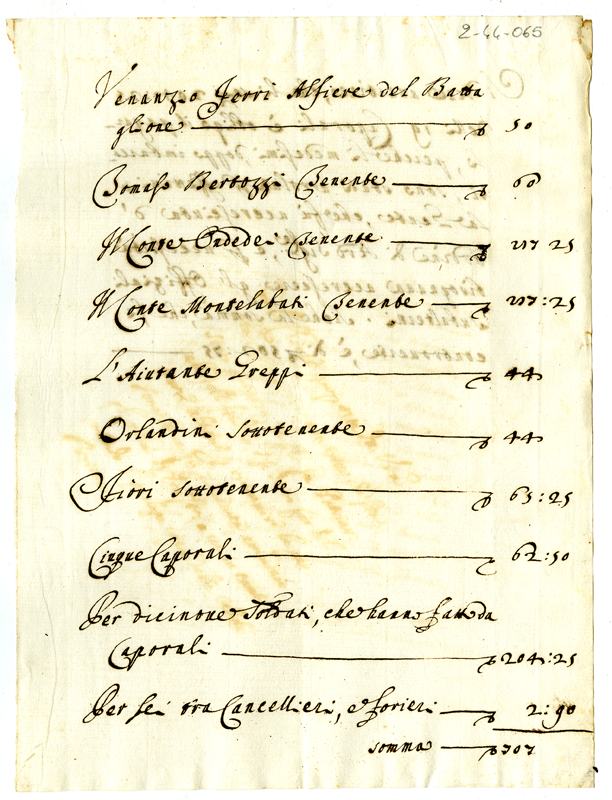 2-44-065
Venanzio Jorri Alfiere del Batta
glione 50
Tomaso Bertozzi Tenente 60
Il Conte Ondedei Tenente 25
Il Conte Montelabati Tenente :25
L'Aiutante Greppi 44
Orlandini sottotenente 44
Fiori sottotenente 65:25
Cinque Caporali 62:50
Per dicinove Soldati, che hanno fatto da
Caporali 204:25
Per sei tra Cancellieri, e forieri 2:90
somma 707